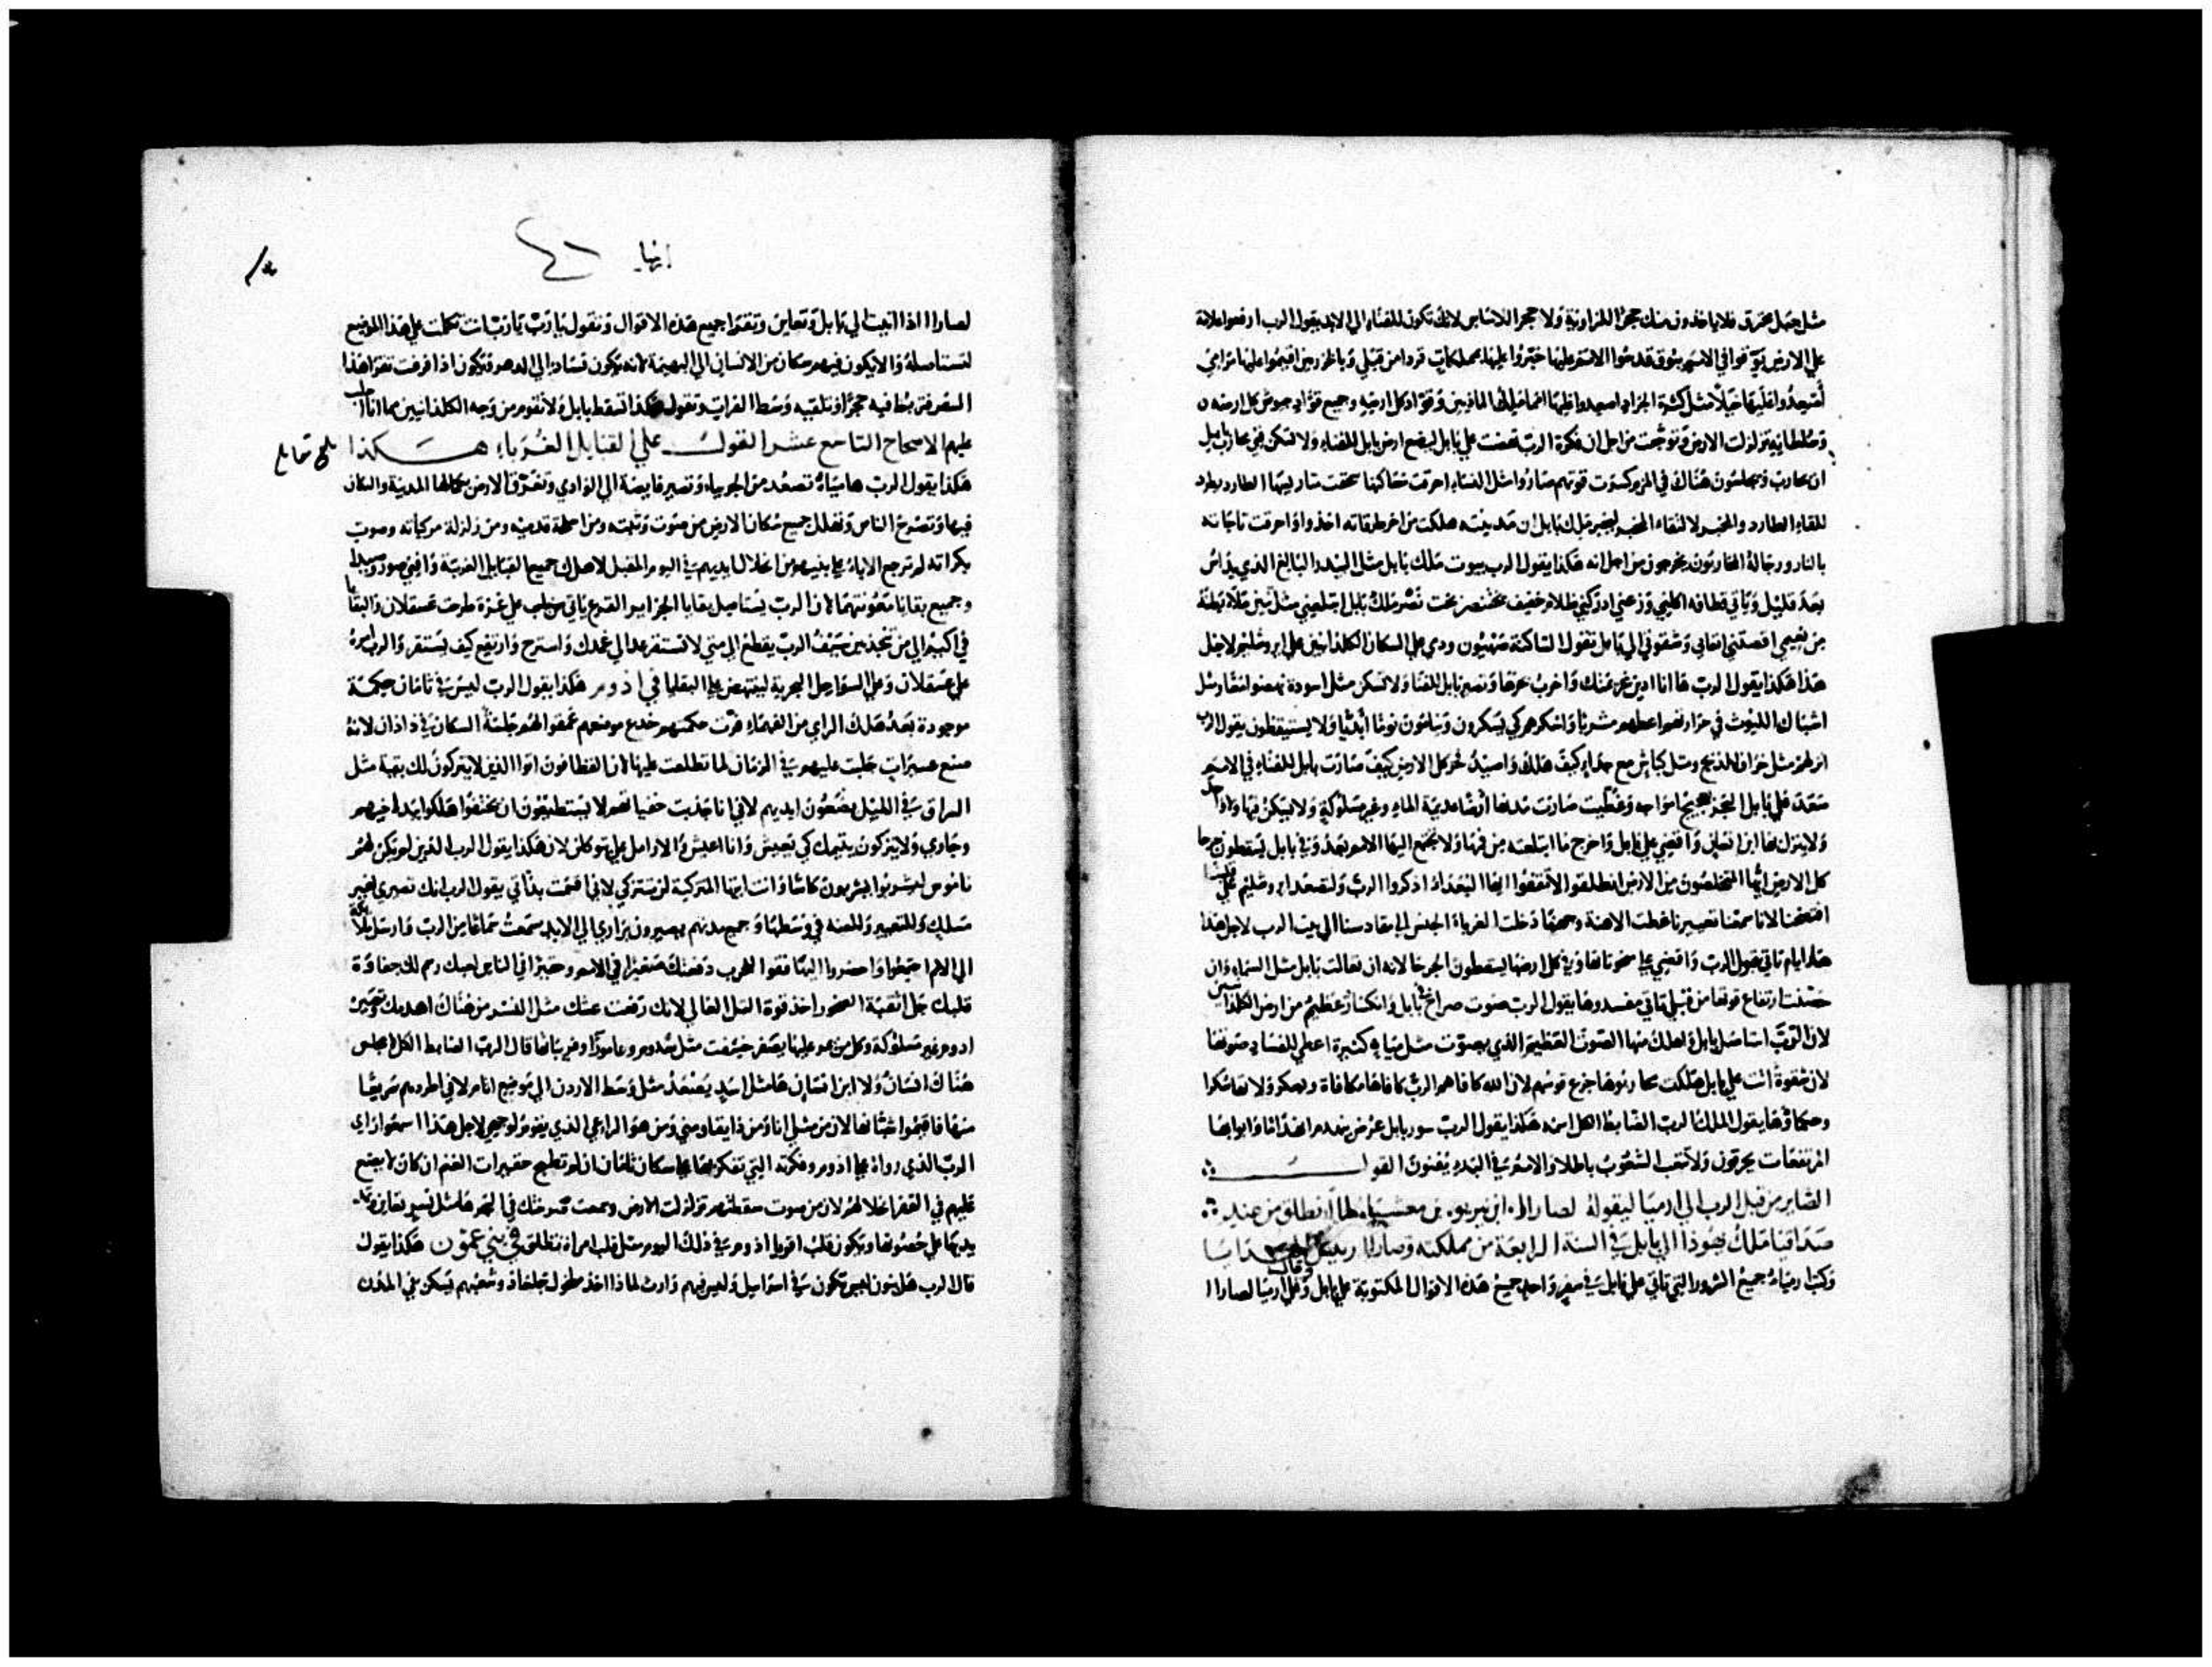 مثل جبل محترق فلا ياخذون منك حجرًا للزاوية ولا حجر اللاساس لانك تكون للفناء الى الابد يقول الرب ارفعوا علامة
علي الارض بوقوا في الامم ببوق قدسوا الامم عليها خبروا عليها مملكات قردا من قبلي
اصعدوا عليها خيلاً مثل كثرة الجراد اصعدوا عليها امما ملك الماذيين وقواد كل ارضه وجميع قواد جيوش كل ارضه
وسلطانه تزلزلت الارض وتوجعت من اجل ان فكرة الرب نهضت علي بابل ليضع ارض بابل للفناء ولا تسكن فني محارب بابل
ان يحارب ويجلسون هناك في كسرت قوتهم صاروا مثل النساء احرقت مساكنها سحقت متاريسها الطارد يطرد
للقاء الطارد والمخبر للقاء المخبر ليخبر ملك بابل ان مدينته هلكت من اخر طرقاته اخذوا واحرقت
بالنار ورجاله المحاربون يخرجون من اجل انه هكذا يقول الرب بيوت ملك بابل مثل البيدر البالغ الذي يداس
بعد قليل وياتي قطافه اكلني بخت نصر ملك بابل ابتلعني مثل تنين ملأ بطنه
من نعيمي وشقوتي الي بابل تقول الساكنة صهيون ودمي علي السكان الكلدانيين تقول اورشليم لاجل
هذا هكذا يقول الرب ها انا ادين خصمك واخرب بحرها وتصير بابل للفناء ولا تسكن مثل اسود نهضوا معا ومثل
اشبال الليوث في حرارتهم اعطيهم مشربا واسكرهم كي يسكرون وينامون نوما أبديًا ولا يستيقظون يقول الرب
انزلهم مثل خراف للذبح ومثل كباش مع جداء كيف هلك واصيد فخر كل الارض كيف صارت بابل للفناء في الامم
صعد علي بابل البحر بضجيج امواجه وغطيت صارت مدنها أرضا عديمة الماء وغير مسلوكة ولا يسكن فيها واحد
ولا ينزل بها ابن انسان وانتقم علي بابل واخرج ما ابتلعته من فمها ولا تجتمع اليها الامم بعد وفي بابل يسقطون جرحا
كل الارض ايها المتخلصون من الارض انطلقوا لا تقفوا ايها البعداء اذكروا الرب ولتصعد اورشليم علي قلبكم
افتضحنا لانا سمعنا تعييرنا غطت الاهانة وجوهنا دخلت الغرباء الجنس الى مقادسنا الي بيت الرب لاجل هذا
ها ايام تاتي يقول الرب وانتقم علي منحوتاتها وفي كل ارضها يسقطون الجرحا لانه ان تعالت بابل مثل السماء وان
حصنت ارتفاع قوتها من قبلي تاتي مفسدوها يقول الرب صوت صراخ في بابل وانكسار عظيم من ارض الكلدانيين
لان الرب استاصل بابل واهلك منها الصوت العظيم الذي يصوت مثل مياه كثيرة اعطي للفساد صوتها
لان شقوة اتت علي بابل هلكت محاربوها جزع قوسهم لان الله كافاهم الرب كافاها مكافاة ويسكر ولاتها سكرا
وحكماؤها يقول الملك الرب الضابط الكل اسمه هكذا يقول الرب سور بابل عرض يهدم انهدامًا وابوابها
المرتفعات يحرقون ولا تتعب الشعوب باطلا والامم في البدء يفنون القول
الصاير من قبل الرب الي ارميا ليقوله لصارا ابن نيريو بن معشيا لما انطلق من عند
صداقيا ملك يهوذا الي بابل في السنة الرابعة من مملكته وصارا رييس الهدايا
وكتب ارمياء جميع الشرور التي تاتي علي بابل في سفر واحد جميع هذه الاقوال المكتوبة علي بابل وقال ارميا لصارا
انبيا ٤٦
لصارا اذا اتيت الي بابل وتعاين وتقرا جميع هذه الاقوال وتقول يا رب يا رب انت تكلمت علي هذا الموضع
لتستاصله ولا يكون فيه سكان من الانسان الي البهيمة لانه يكون فسادا الي الدهر ويكون اذا فرغت تقرا هذا
السفر فتربط فيه حجرًا وتلقيه وسط الفرات وتقول هكذا تسقط بابل ولا تقوم من وجه الكلدانيين مما انا اجلب
عليهم الاصحاح التاسع عشر القول علي القبايل الغرباء هكذا
هكذا يقول الرب ها مياه تصعد من الجربياء وتصير فايضة الي الوادي وتغرق الارض بكمالها المدينة والسكان
فيها وتصرخ الناس وتهلل جميع سكان الارض من صوت وثبته ومن اسلحة قدميه ومن زلزلة مركباته وصوت
بكراته لم ترجع الاباء علي بنيهم من انحلال ايديهم في اليوم المقبل لاهلاك جميع القبايل الغريبة وافني صور وصيدا
وجميع بقايا معونتهما لان الرب يستاصل بقايا الجزاير القرع ياتي علي غزة طرحت عسقلان والبقايا
في اكيم الي متي تتجذبين سيف الرب يقطع الي متي لا تستقر عد الي غمدك واسترح وارتفع كيف يستقر والرب امره
علي عسقلان وعلي السواحل البحرية لينهض علي البقايا في ادوم هكذا يقول الرب ليس في تامان حكمة
موجودة بعد هلك الراي من الفهماء فرت حكمتهم خدع موضعهم عمقوا لهم جلسة السكان في دادان لانه
صنع عسيرات جلبت عليهم في الزمان لما تطلعت عليها لان القطافون اتوا الذين لا يتركون لك بقية مثل
السراق في الليل يضعون ايديهم لاني انا جذبت خفياتهم لا يستطيعون ان يختفوا هلكوا بيد اخيهم
وجاري ولا يتركون يتيمك كي تعيش وانا اعيش والارامل علي توكلن لان هكذا يقول الرب الذين لم يكن لهم
ناموس ليشربوا يشربون كاسًا وانت ايتها المتزكية لن تتزكي لاني اقسمت بذاتي يقول الرب انك تصيري لغير
مسلك وللتعيير وللعنة في وسطها وجميع مدنهم يصيرون براري الي الابد سمعت سماعًا من الرب وارسل ملاكه
الي الامم اجتمعوا واحضروا اليها قفوا للحرب دفعتك صغيرًا في الامم وحقيرًا في الناس لعبك رسم لك جفاوة
قلبك حل اثقبة الصخور اخذ قوة التل العالي لانك رفعت عشك مثل النسر من هناك اهدمك وتصير
ادوم غير مسلوكة وكل من عبر عليها يصفر خسفت مثل سدوم وعامورا وقريباتها قال الرب الضابط الكل لا يجلس
هناك انسان ولا ابن انسان ها مثل اسد يصعد مثل وسط الاردن الي موضع اتام لاني اطردهم سريعًا
منها فاقيموا شبانها لان من مثلي انا ومن ذا يقاومني ومن هو الراعي الذي يقوم لوجهي لاجل هذا اسمعوا راي
الرب الذي رواه علي ادوم وفكرته التي تفكر بها علي سكان تامان ان لم تطرح حقيرات الغنم ان كان لا يضع
عليهم في القفر اغلالهم لان من صوت سقطتهم تزلزلت الارض وسمعت صرختك في البحر ها مثل نسر تعاين وتمد
يديها علي حصونها ويكون قلب اقوياء ادوم في ذلك اليوم مثل قلب امراة تطلق في بني عمون هكذا يقول
قال الرب هل بنون ليس تكون في اسراييل وليس فيهم وارث لماذا اخذ ملخول جلعاد وشعبهم يسكن في المدن